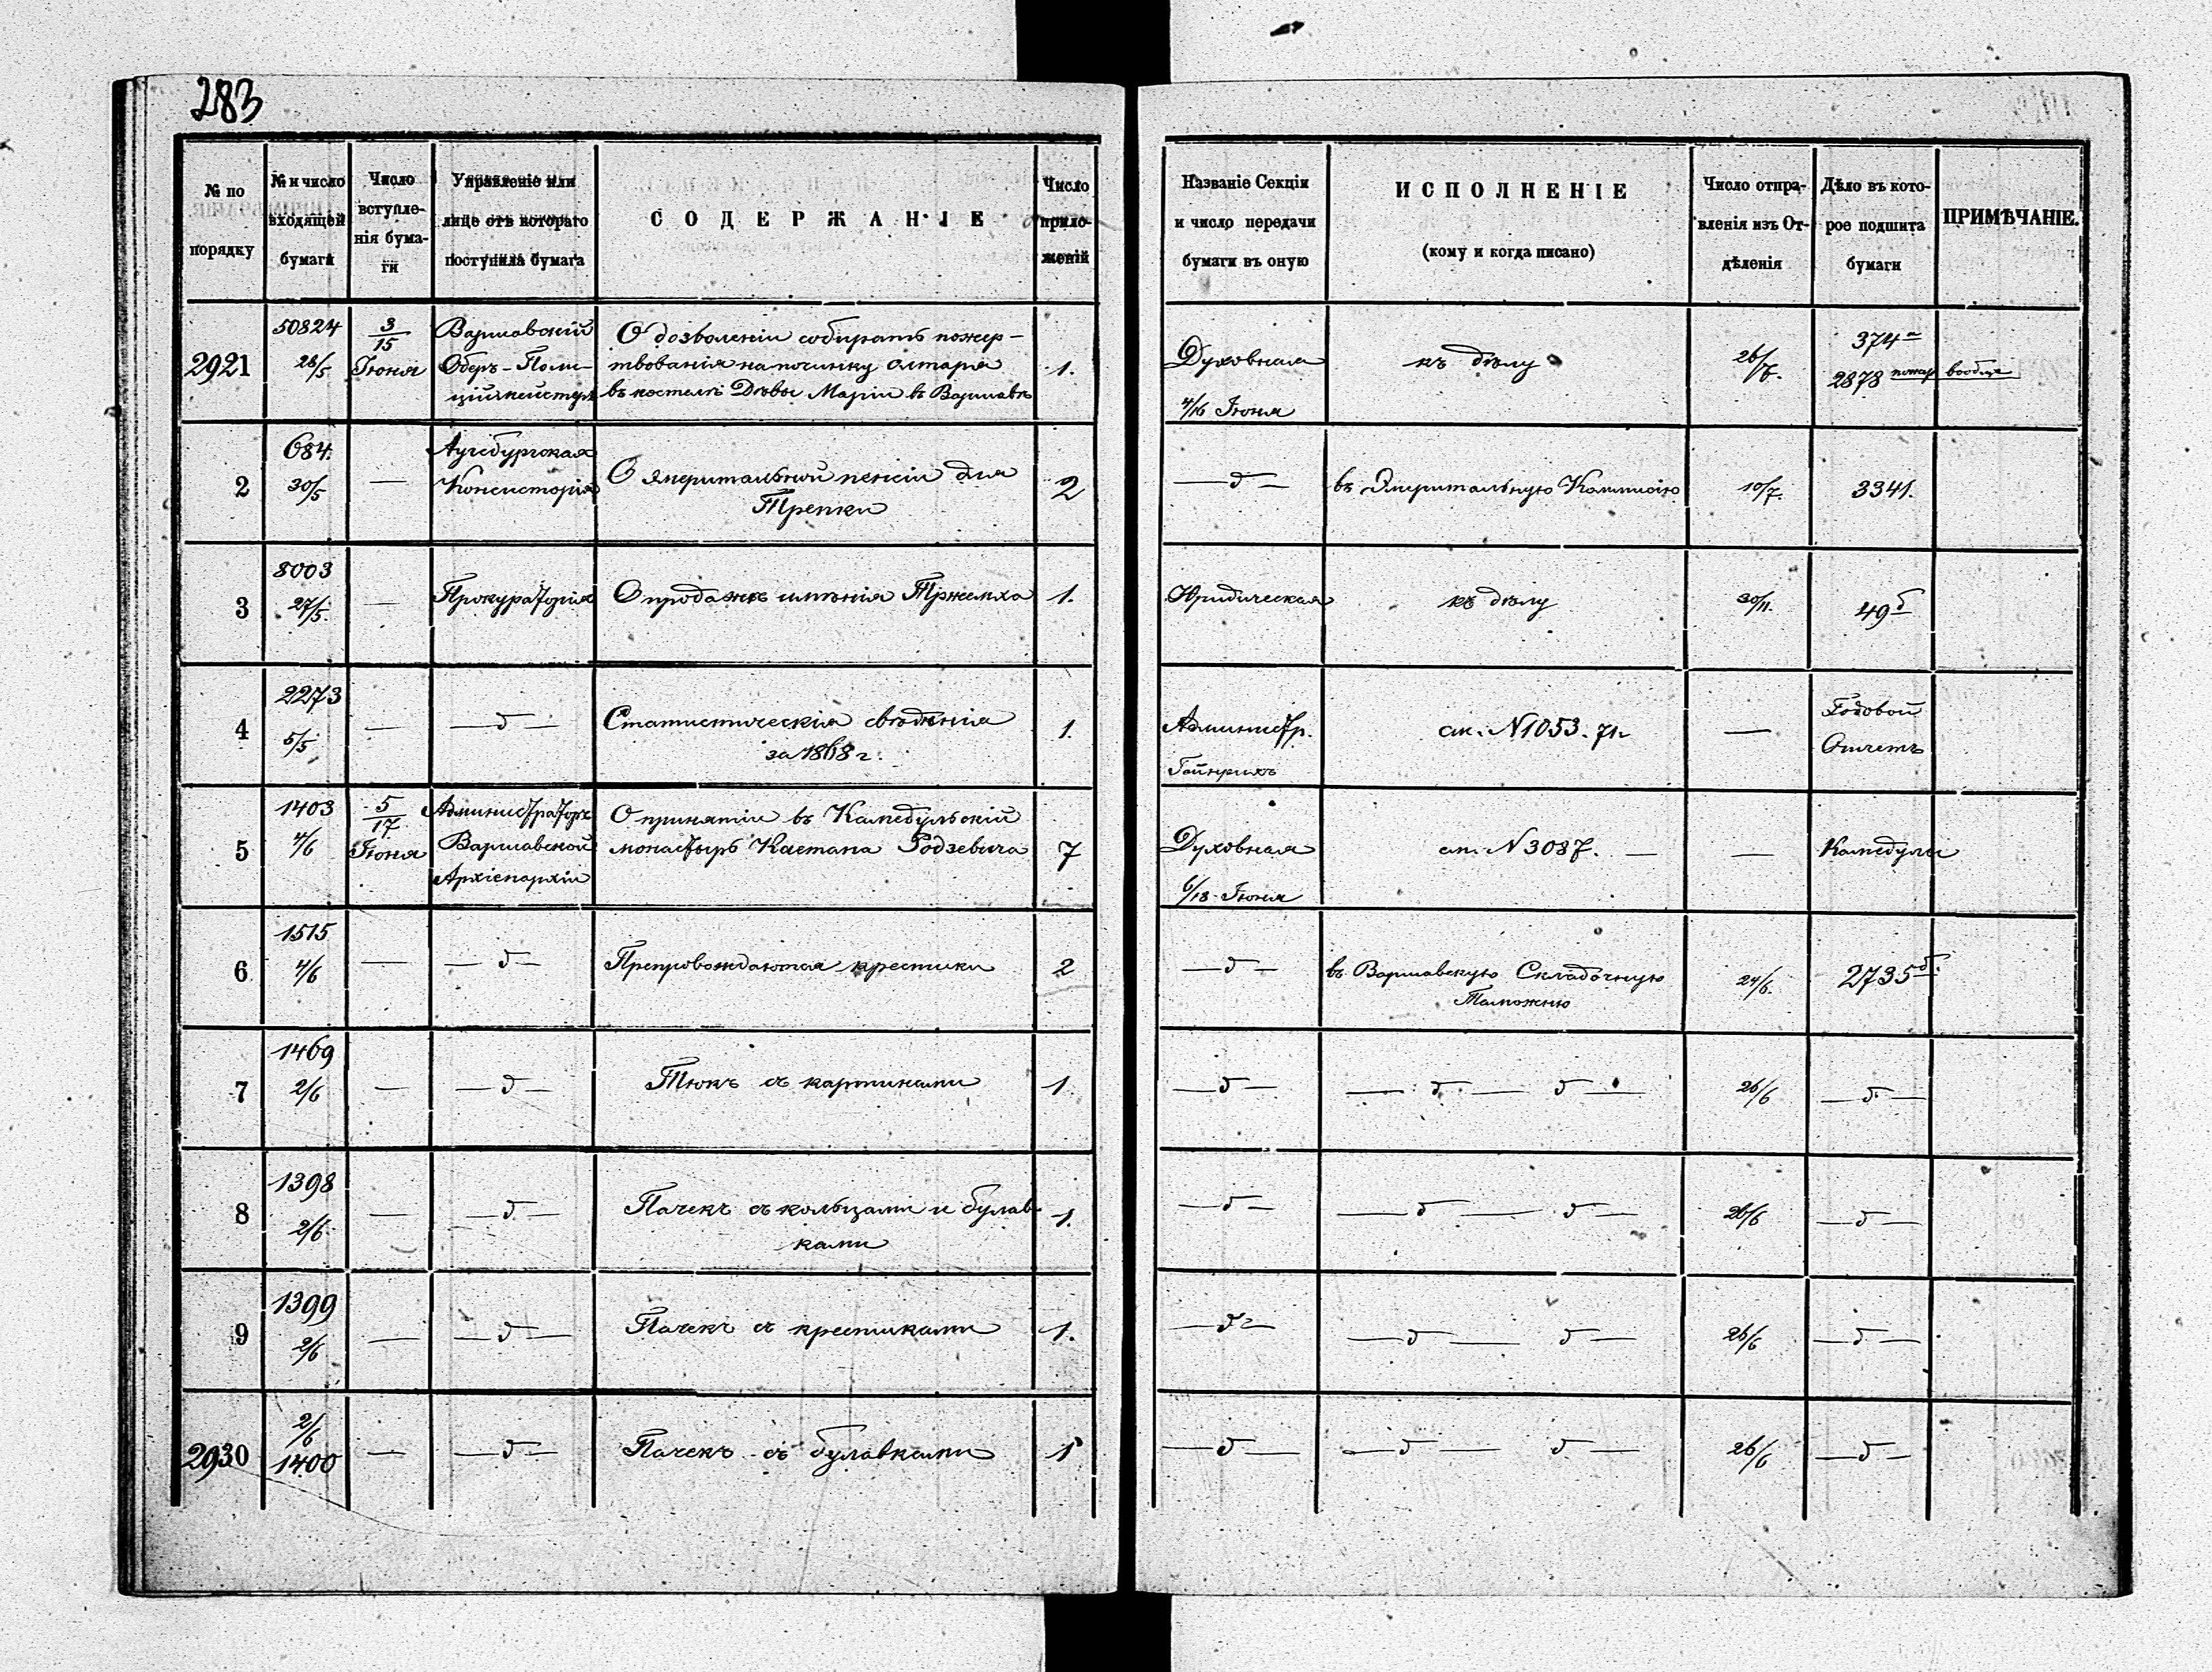 283
№ по порядку
№ и число входящей бумаги
Число вступленія бумаги
Управленіе или лице отъ котораго поступила бумага
СОДЕРЖАНІЕ
Число приложеній
Названіе Секціи и число передачи бумаги въ оную
ИСПОЛНЕНІЕ
(кому и когда писано)
Число отправленія изъ Отдѣленія
Дѣло въ которое подшита бумаги
ПРИМѢЧАНІЕ.
2921
50824
28/5
3/15
Іюня
Варшавскій
Оберъ-Поли-
ціймейстеръ
О дозволеніи собирать пожер-
твованія на починку алтаря
въ костелѣ Дѣвы Маріи въ Варшавѣ
1.
Духовная
4/16 Іюня
къ дѣлу
26/7.
374 а
2878 пожер вообще
2
684.
30/5
—
Аугсбургская
Консисторія
О эмеритальной пенсіи для
Трепки
2
— д —
въ Эмеритальную Коммисію
10/7.
3341.
3
8003
27/5.
—
Прокураторія
О продажѣ имѣнія
1.
Юридическая
къ дѣлу
30/11.
49 б
4
2273
5/5
—
— д —
Статистическія свѣдѣнія
за 1868 г.
1.
Администр.
Гейнрихъ
см. N 1053.
—
Годовой
Отчетъ
5
1403
4/6
5/17
Іюня
Администраторъ
Варшавской
Архіепархіи
О принятіи въ Камедульскій
монастырь Каетана Родзевича
7
Духовная
6/18 Іюня
см. N 3087. —
—
Камедулы
6
1515
4/6
—
— д —
Препровождаются крестики
2
— д —
въ Варшавскую Складочную
Таможню
24/6.
2735 б.
7
1469
2/6
—
— д —
Тюкъ съ картинами
1.
— д —
— д — д —
26/6
— д —
8
1398
2/6
—
— д —
Пачекъ съ кольцами и булав-
ками
1.
— д —
— д — д —
26/6
— д —
9
1399
2/6
—
— д —
Пачекъ съ крестиками
1.
— д —
— д — д —
26/6
— д —
2930
2/6
1400
—
— д —
Пачекъ съ булавками
1
— д —
— д — д —
26/6
— д —